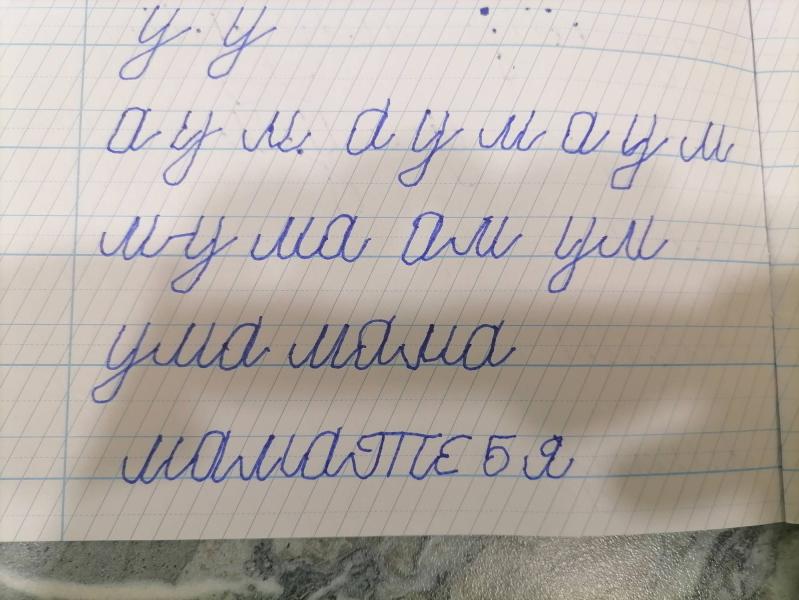 у у
а у м. а у м а у м
м-у ма ам ум
ума мама
мамаТЕБЯ